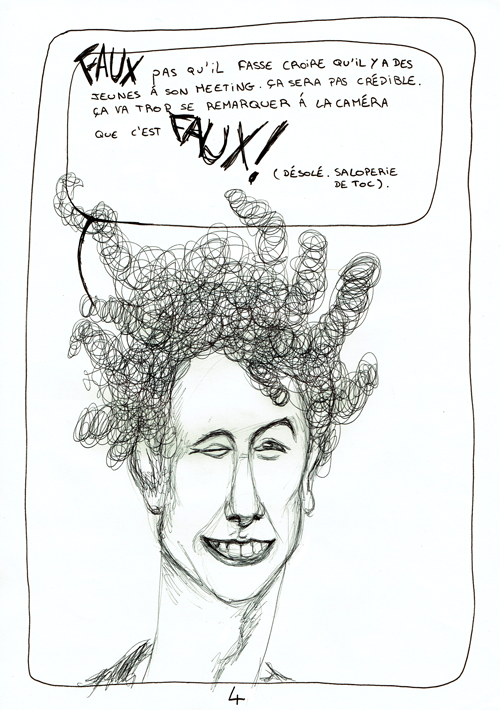 FAUX PAS QU'IL FASSE CROIRE QU'IL Y A DES
JEUNES À SON MEETING. ÇA SERA PAS CRÉDIBLE.
ÇA VA TROP SE REMARQUER À LA CAMÉRA
QUE C'EST FAUX!
(DÉSOLÉ. SALOPERIE
DE TOC).
4